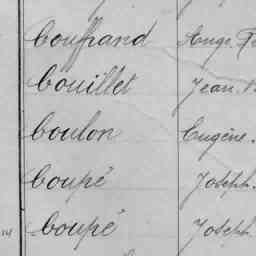 Couffrand Ange
Couillet Jean
Coulon Eugène
Coupé Joseph
Coupé Joseph